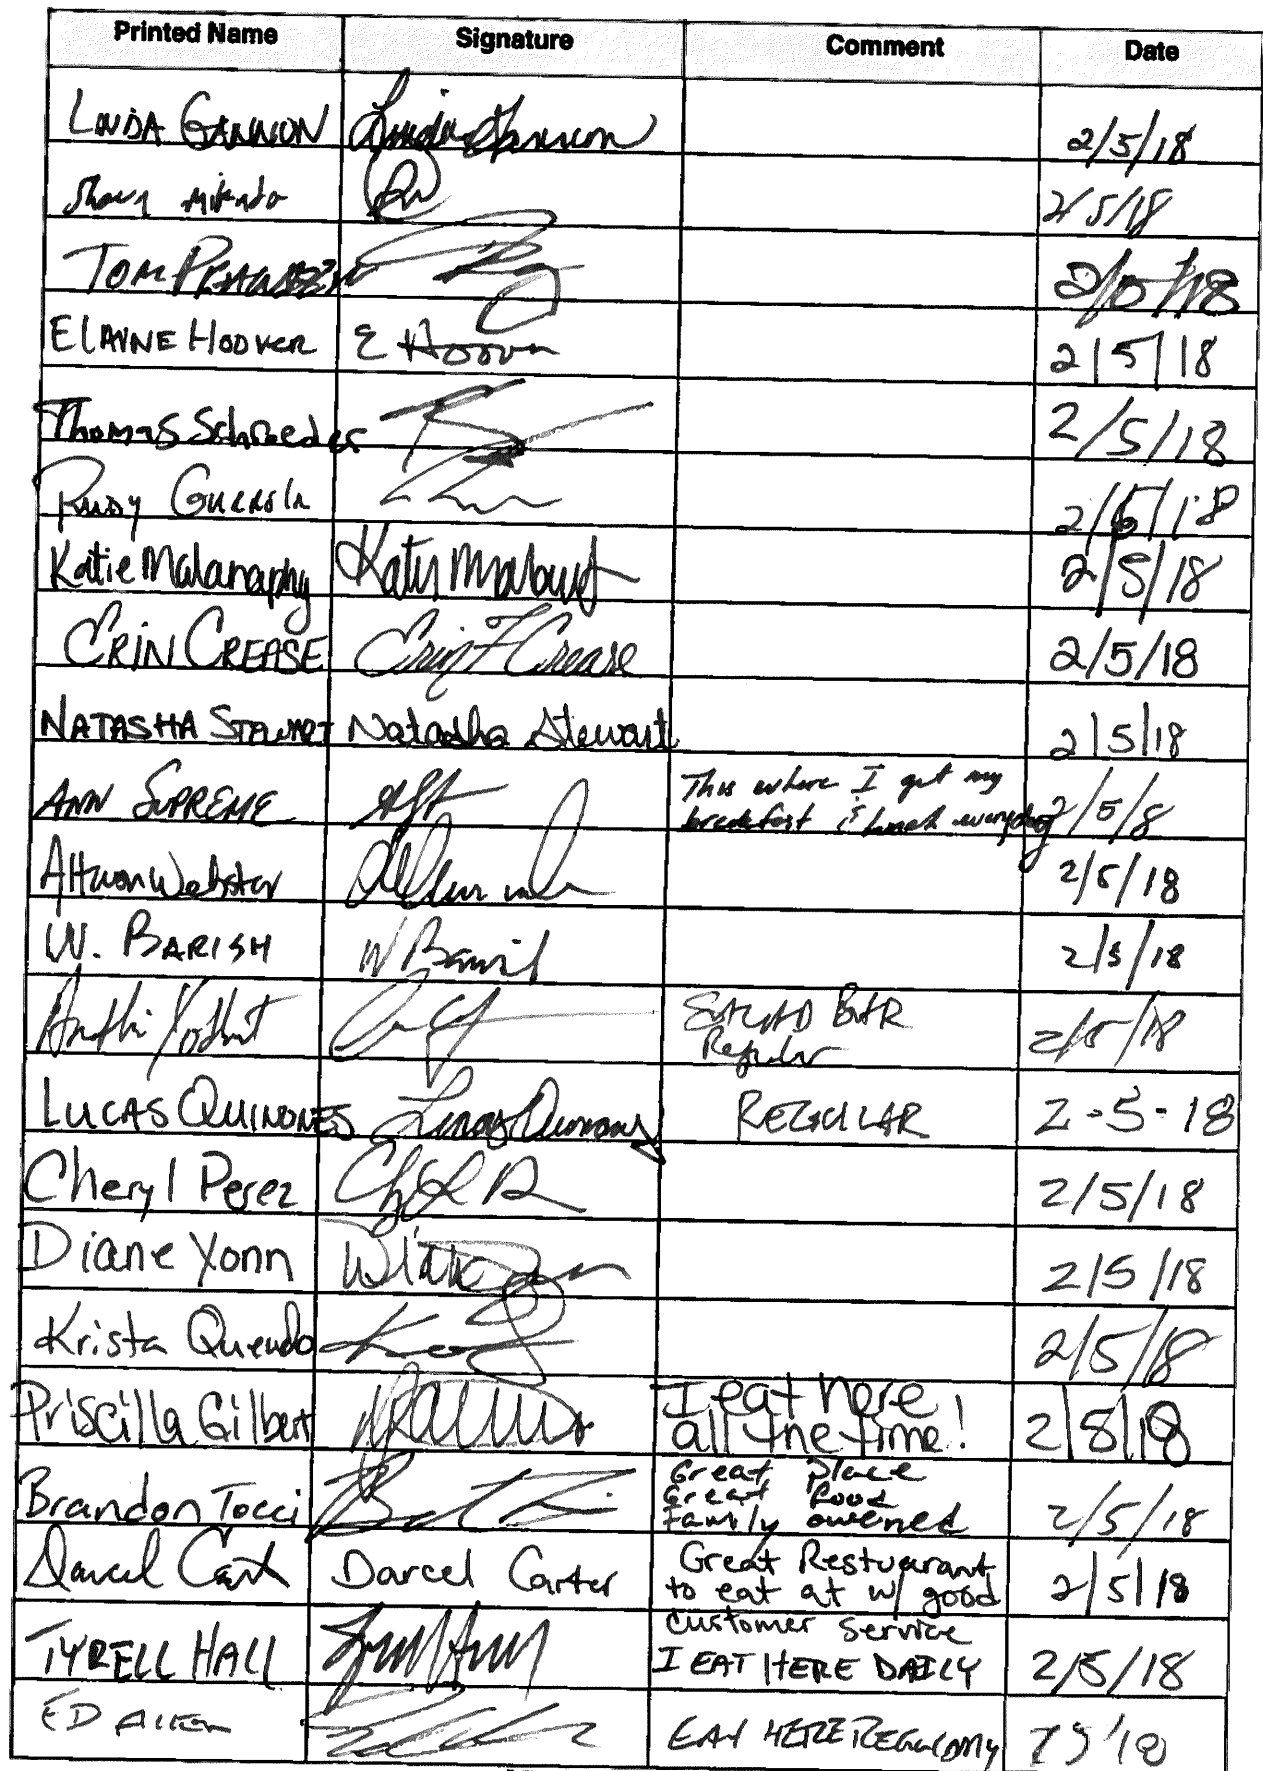 Printed Name Signature Comment Date
LINDA GANNON Linda Gannon 2/5/18
Shawn 2/5/18
TOM 2/5/18
ELAINE HOOVER E Hoover 2/5/18
Thomas Schroeder 2/5/18
RUDY 2/5/18
Katie Malanaphy 2/5/18
ERIN CREASE Erin F Crease 2/5/18
NATASHA STEWART Natasha Stewart 2/5/18
ANN SUPREME This where I get my
breakfast & lunch everyday 2/5/8
Attwon Webster 2/5/18
W. BARISH W Barish 2/5/18
SALAD BAR
Regular 2/5/18
LUCAS QUINONES Lucas Quinones REGULAR 2-5-18
Cheryl Perez 2/5/18
Diane Yonn 2/5/18
Krista Quendo 2/5/18
Priscilla Gilbert I eat here
all the time! 2/8/18
Brandon Tocci Great place
Great food
Family owened 2/5/18
Darcel Cart Darcel Carter Great Restuarant
to eat at w/ good 2/5/18
customer service
TYRELL HALL I EAT HERE DAILY 2/5/18
ED EAT HERE REGULARLY